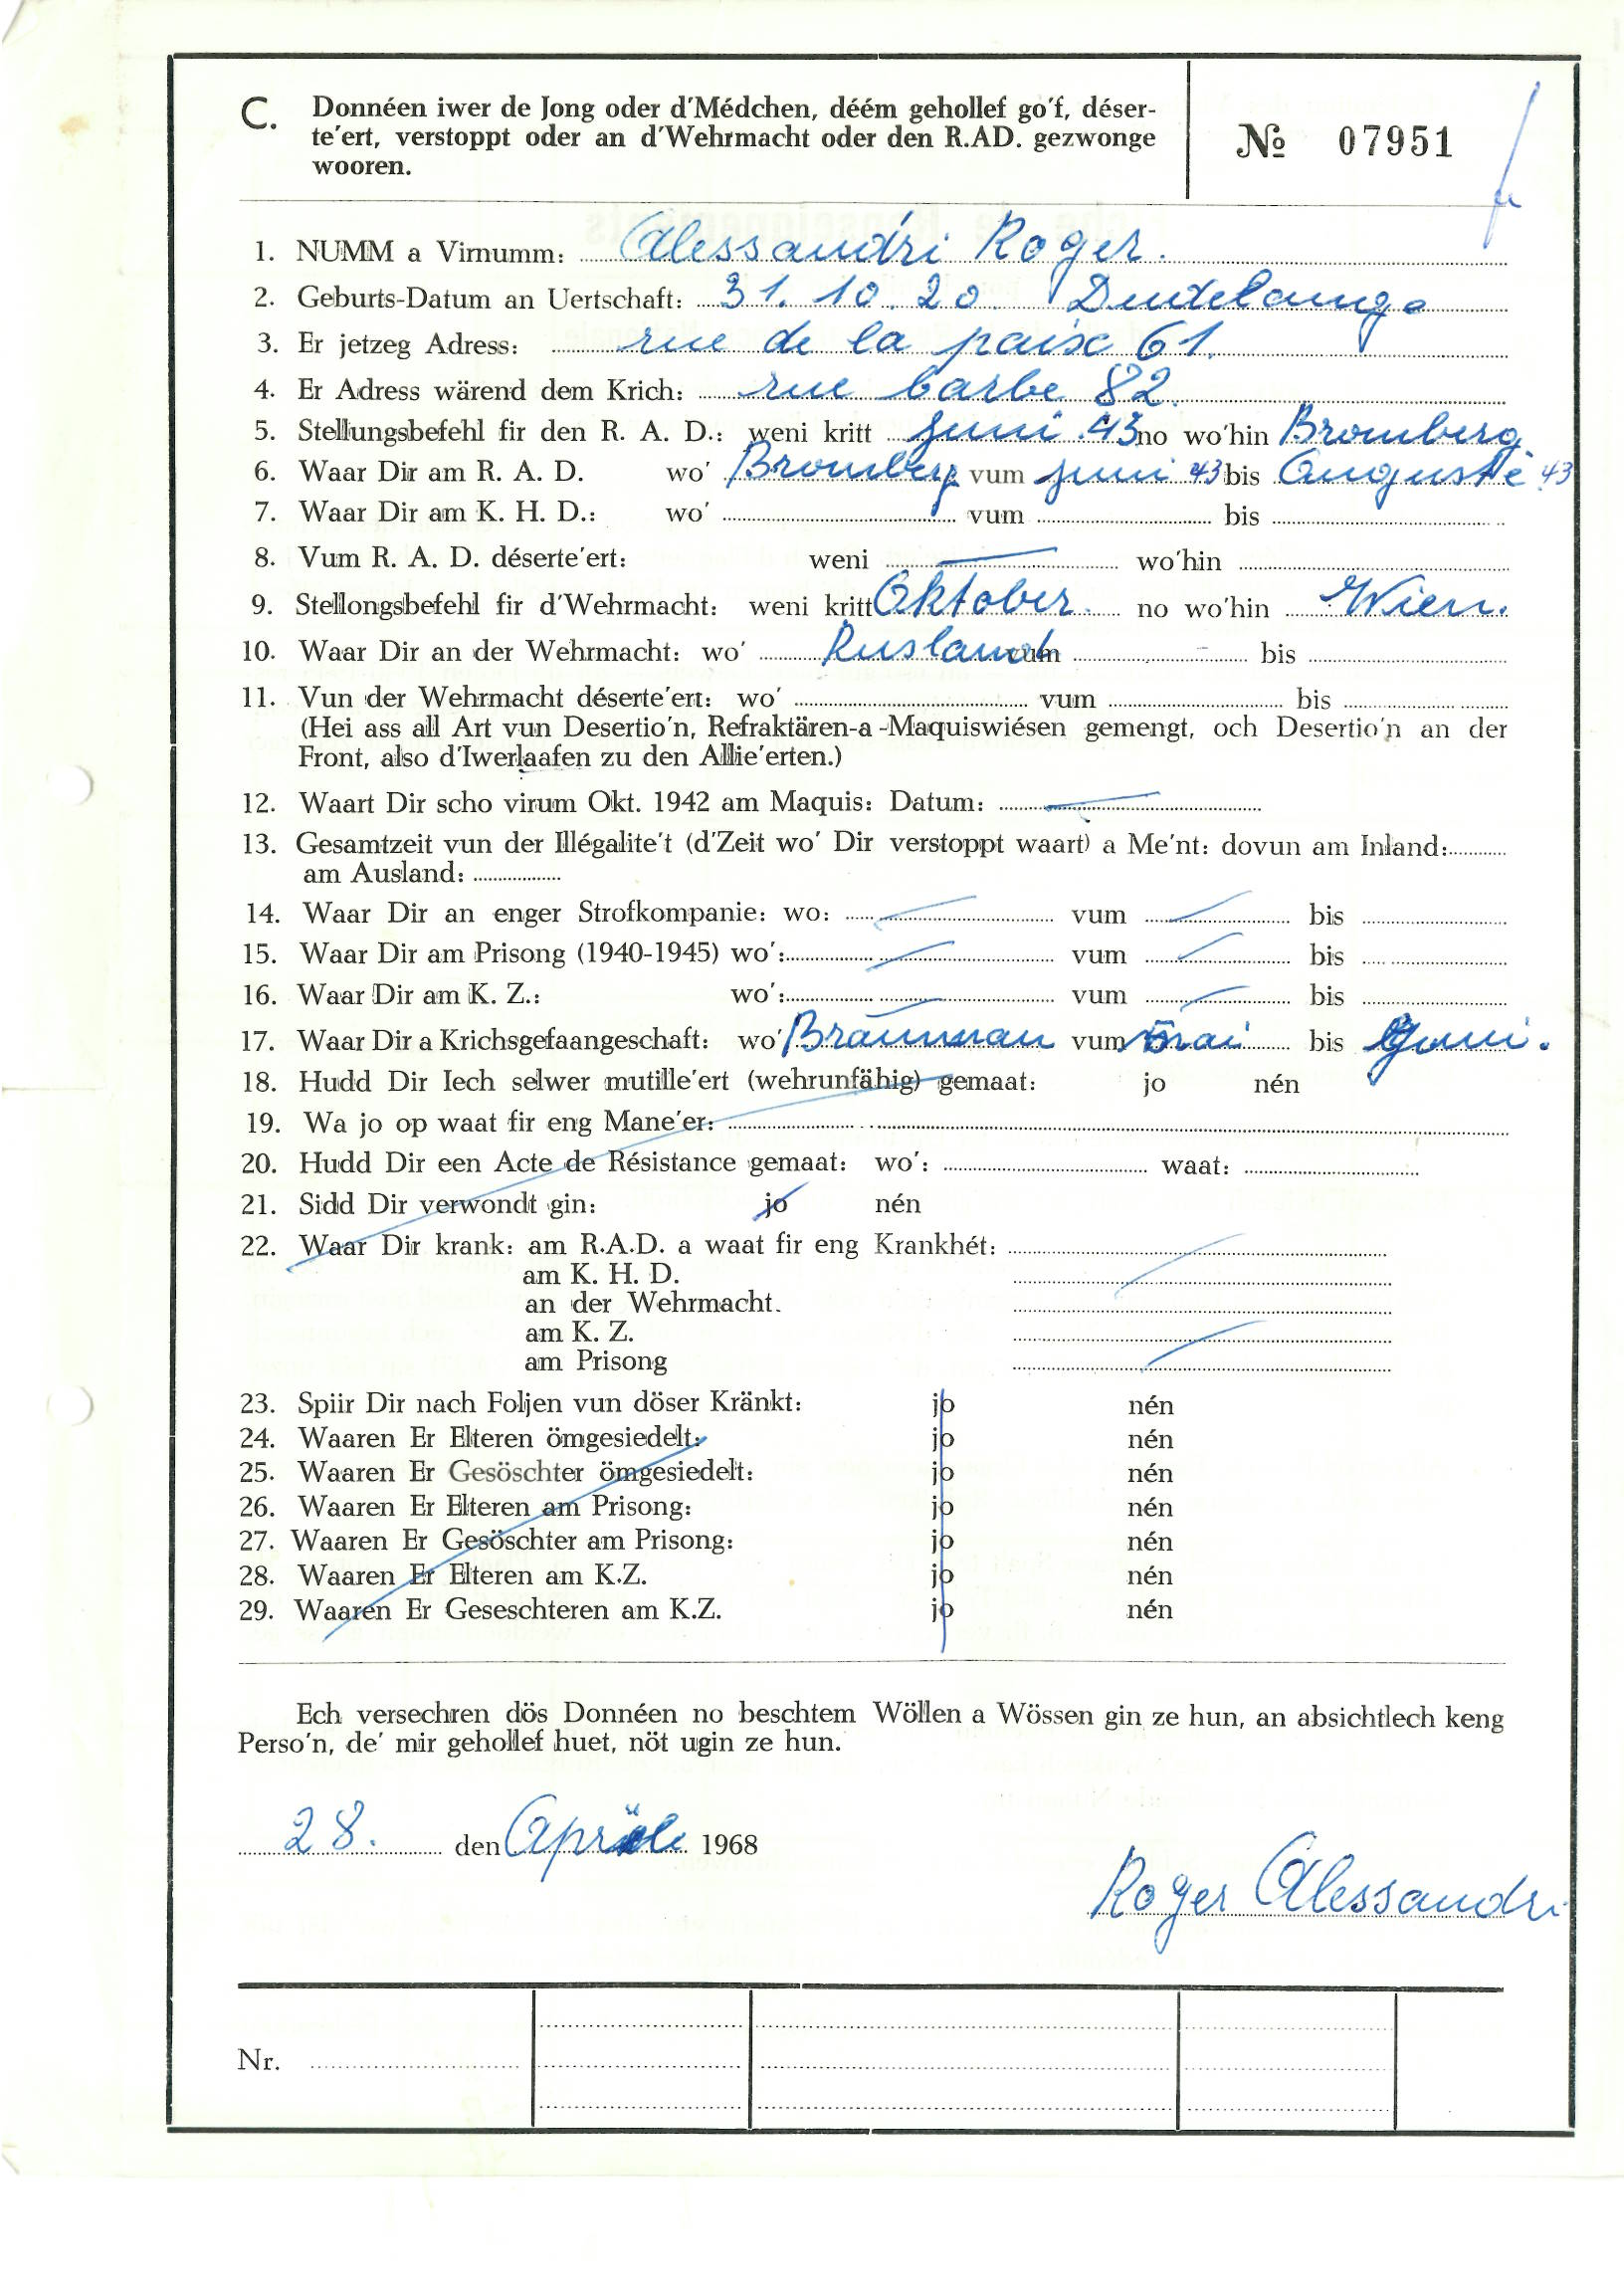 C. Donnéen iwer de Jong oder d'Médchen, déém gehollef go'f, déser-
te'ert, verstoppt oder an d'Wehrmacht oder den R.AD. gezwonge
wooren.
№ 07951
1. NUMM a Virnumm: Alessandri Roger.
2. Geburts-Datum an Uertschaft: 31. 10. 20. Dudelange
3. Er jetzeg Adress: rue de la paix 61.
4. Er Adress wärend dem Krich: rue barbe 82.
5. Stellungsbefehl fir den R. A. D.: weni kritt Juni 43 no wo'hin Bromberg
6. Waar Dir am R. A. D. wo' Bromberg vum Juni 43 bis Auguste 43
7. Waar Dir am K. H. D.: wo' vum bis
8. Vum R. A. D. déserte'ert: weni wo'hin
9. Stellongsbefehl fir d'Wehrmacht: weni kritt Oktober. no wo'hin Wien.
10. Waar Dir an der Wehrmacht: wo' Rusland vum bis
11. Vun der Wehrmacht déserte'ert: wo' vum bis
(Hei ass all Art vun Desertio'n, Refraktären-a-Maquiswiésen gemengt, och Desertio'n an der
Front, also d'Iwerlaafen zu den Allie'erten.)
12. Waart Dir scho virum Okt. 1942 am Maquis: Datum:
13. Gesamtzeit vun der Illégalite't (d'Zeit wo' Dir verstoppt waart) a Me'nt: dovun am Inland:
am Ausland:
14. Waar Dir an enger Strofkompanie: wo: vum bis
15. Waar Dir am Prisong (1940-1945) wo': vum bis
16. Waar Dir am K. Z.: wo': vum bis
17. Waar Dir a Krichsgefaangeschaft: wo' Braunnau vum Mai bis Juni.
18. Hudd Dir Iech selwer mutille'ert (wehrunfähig) gemaat: jo nén
19. Wa jo op waat fir eng Mane'er:
20. Hudd Dir een Acte de Résistance gemaat: wo': waat:
21. Sidd Dir verwondt gin: jo nén
22. Waar Dir krank: am R.A.D. a waat fir eng Krankhét:
am K. H. D.
an der Wehrmacht.
am K. Z.
am Prisong
23. Spiir Dir nach Foljen vun döser Kränkt: jo nén
24. Waaren Er Elteren ömgesiedelt: jo nén
25. Waaren Er Gesöschter ömgesiedelt: jo nén
26. Waaren Er Elteren am Prisong: jo nén
27. Waaren Er Gesöschter am Prisong: jo nén
28. Waaren Er Elteren am K.Z. jo nén
29. Waaren Er Geseschteren am K.Z. jo nén
Ech versechren dös Donnéen no beschtem Wöllen a Wössen gin ze hun, an absichtlech keng
Perso'n, de' mir gehollef huet, nöt ugin ze hun.
28. den Apräle 1968
Roger Alessandri
Nr.